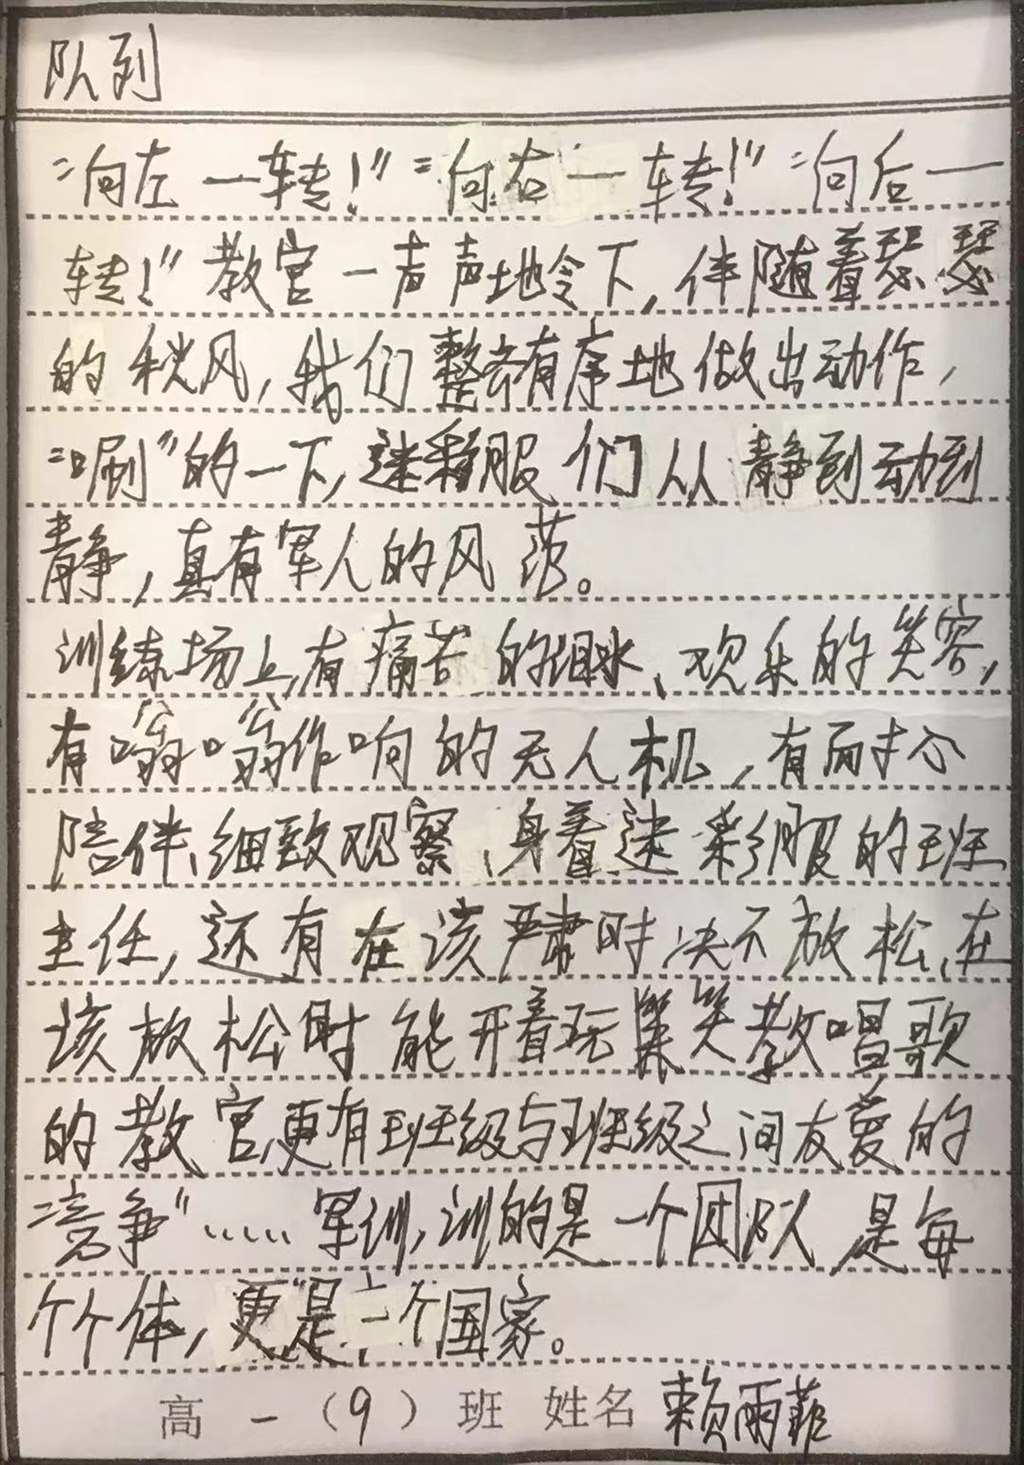 队列
“向左一转！”“向右一转！”“向后一
转！”教官一声声地令下，伴随着瑟瑟
的秋风，我们整齐有序地做出动作，
“唰”的一下，迷彩服们从静到动到
静，真有军人的风范。
训练场上，有痛苦的泪水、欢乐的笑容，
有嗡嗡作响的无人机，有耐心
陪伴、细致观察、身着迷彩服的班
主任，还有在该严肃时决不放松、在
该放松时能开着玩笑教唱歌
的教官，更有班级与班级之间友爱的
“竞争”……军训，训的是一个团队 是每
个个体，更是一个国家。
高一（9）班 姓名 赖雨菲